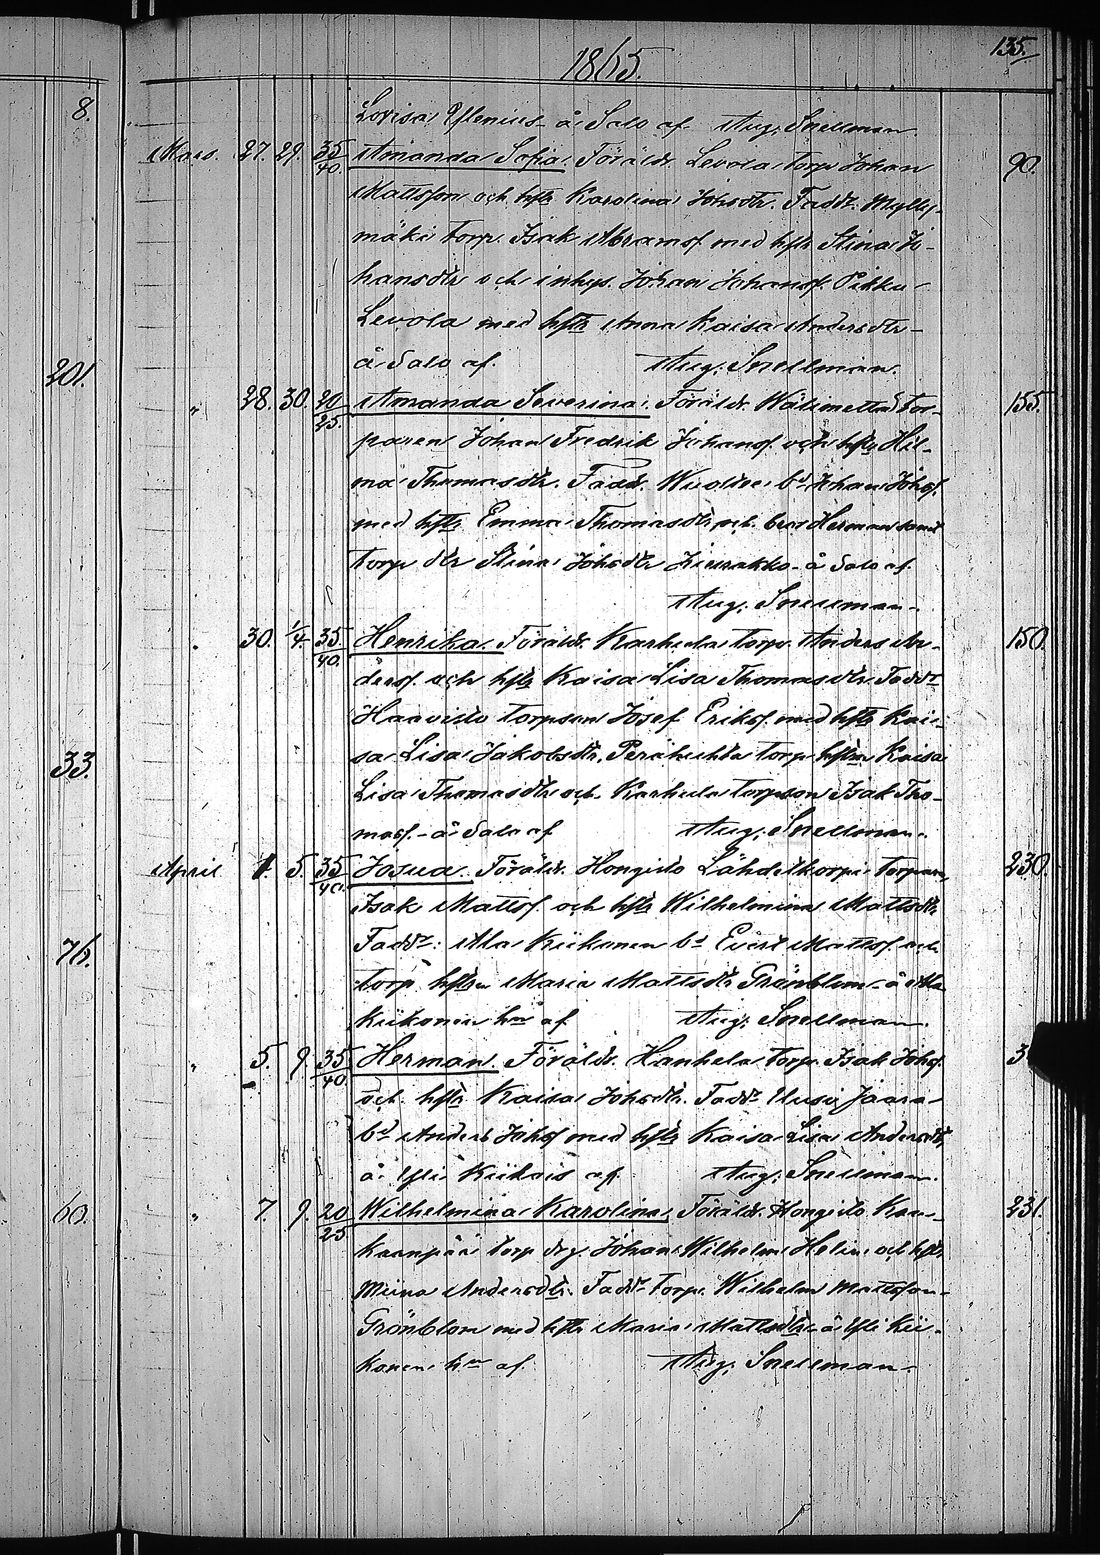 135.
1865.
8.
Lovisa Ylenius å Salo af Aug. Snellman
Mars. 27. 29. 35/40. Amanda Sofia. Föräldr. Levola torp. Johan 90.
Mattsson och hstr Karolina Johsdtr. Faddr. Mylly-
mäki torp. Isak Abramsf. med hstr Stina Jo-
hansdtr och inhys. Johan Johansf. Pikku
Levola med hstr Anna Kaisa Andersdtr
å Salo af. Aug. Snellman.
201.
" 28. 30. 20/25. Amanda Severina. Föräldr. Wälimetta tor- 155.
paren Johan Fredrik Johansf. och hstr Hil-
ma Thomasdtr. Faddr. bd Johan Johsf.
med hstr Emma Thomasdtr och Herman samt
torp dtr Stina Johsdtr å Salo af.
Aug. Snellman.
" 30. 1/4. 35/40. Henrika. Föräldr. Karhula torp. Anders An- 150.
dersf. och hstr Kaisa Lisa Thomasdtr. Faddr
Haavisto torpson Josef Eriksf. med hstr Kai-
sa Lisa Jakobsdtr, Peräkuhta torp. hstrn Kaisa
33.
Lisa Thomasdtr och Karhula torpson Isak Tho-
masf. å Salo af Aug. Snellman.
April 1. 5. 35/40. Josua. Föräldr. Hongisto Lähdekorpi torparn 230.
Isak Mattsf. och hstr Wilhelmina Mattsdtr
Faddr: Ala Kiikonen bd Evert Mattsf. och
76.
torp. hstrn Maria Mattsdtr Grönblom å Ala
Kiikonen hmn af Aug. Snellman.
" 5. 9. 35/40. Herman. Föräldr. Hanhela torp. Isak Johsf. 3
och hstr Kaisa Johsdtr. Faddr Uusi Jaara
bd Anders Johsf med hstr Kaisa Lisa Andersdtr,
å Yli Kiikois af. Aug. Snellman.
60.
" 7. 9. 20/25 Wilhelmina Karolina. Föräldr. Hongisto Kan- 231.
kaanpää torp drg. Johan Wilhelm Helin och hstr
Miina Andersdtr. Faddr torp. Wilhelm Mattsson
Grönblom med hstr Maria Mattsdtr å Yli Kii-
konen hmn af. Aug. Snellman.